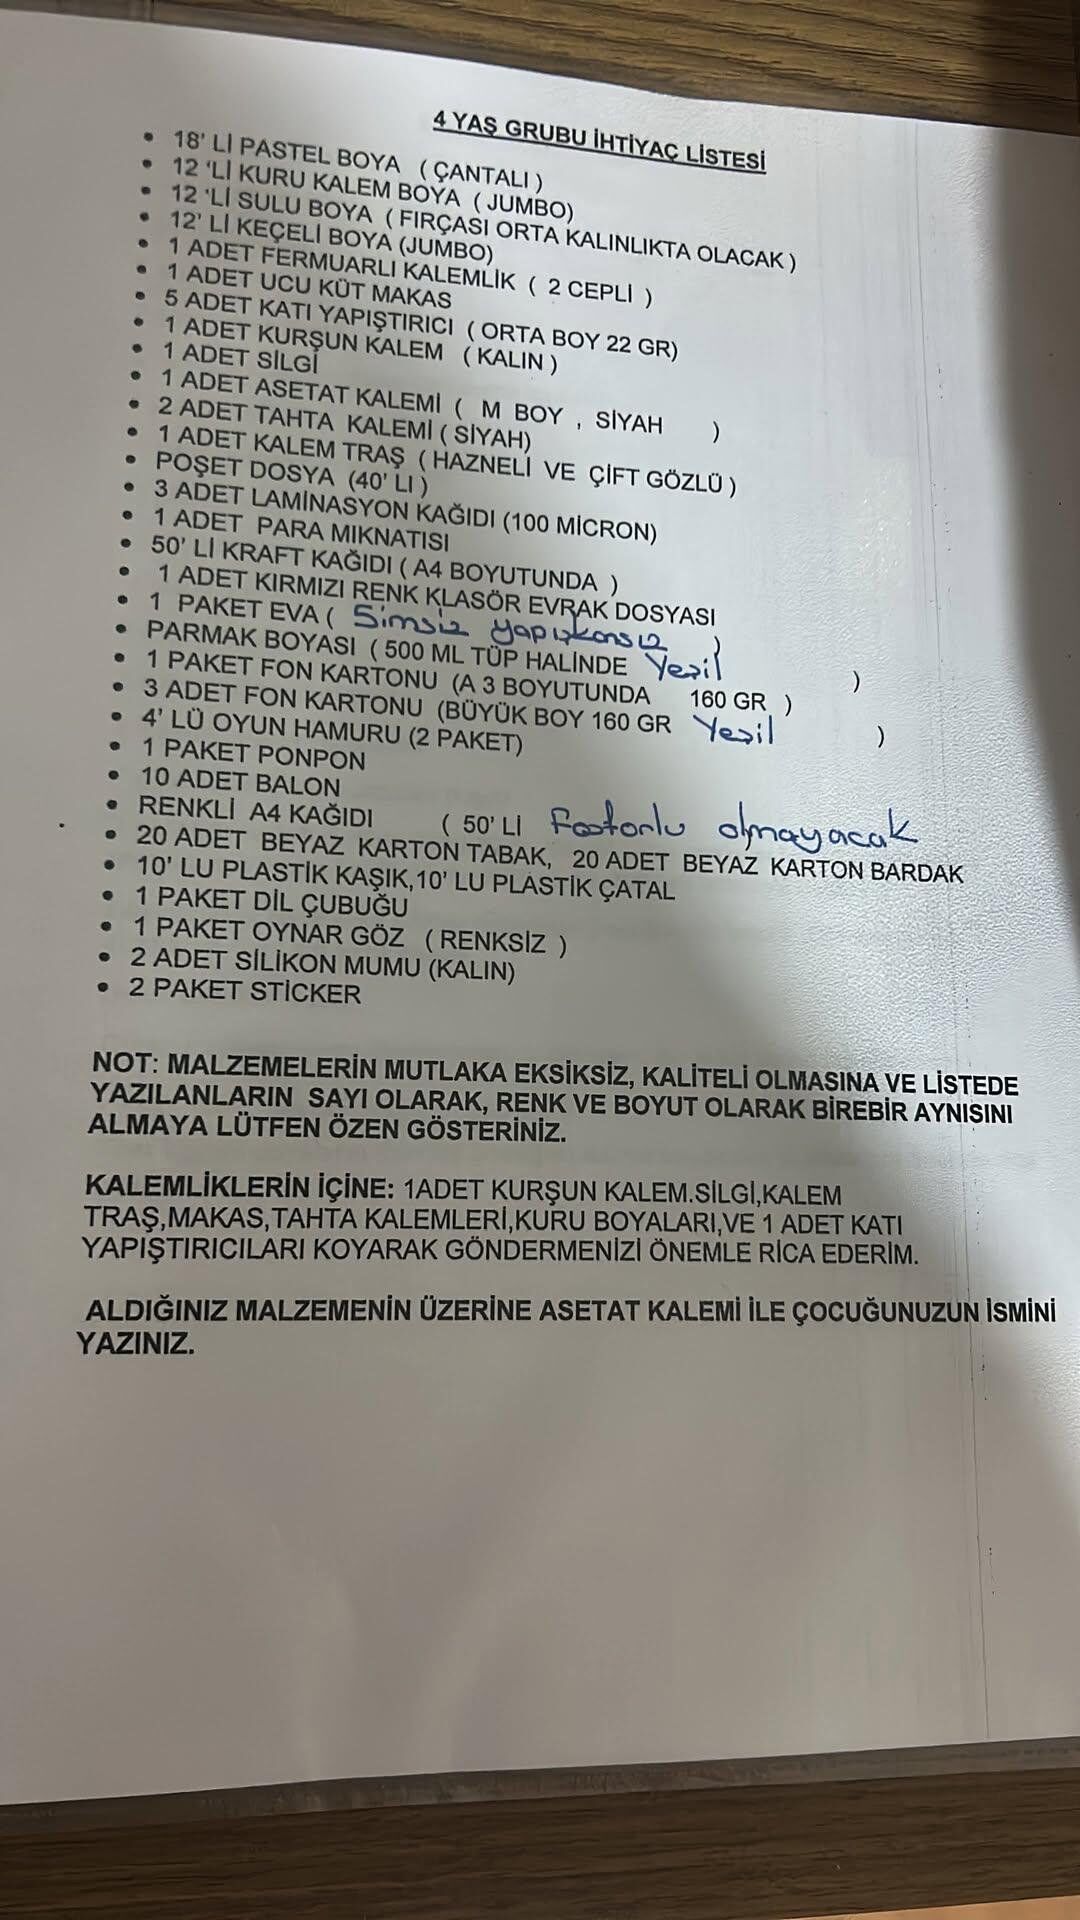 4 YAŞ GRUBU İHTİYAÇ LİSTESİ
• 18' Lİ PASTEL BOYA ( ÇANTALI )
• 12 'Lİ KURU KALEM BOYA ( JUMBO)
• 12 'Lİ SULU BOYA ( FIRÇASI ORTA KALINLIKTA OLACAK )
• 12' Lİ KEÇELİ BOYA (JUMBO)
• 1 ADET FERMUARLI KALEMLİK ( 2 CEPLİ )
• 1 ADET UCU KÜT MAKAS
• 5 ADET KATI YAPIŞTIRICI ( ORTA BOY 22 GR)
• 1 ADET KURŞUN KALEM ( KALIN )
• 1 ADET SİLGİ
• 1 ADET ASETAT KALEMİ ( M BOY , SİYAH )
• 2 ADET TAHTA KALEMİ ( SİYAH)
• 1 ADET KALEM TRAŞ ( HAZNELİ VE ÇİFT GÖZLÜ )
• POŞET DOSYA (40' LI )
• 3 ADET LAMİNASYON KAĞIDI (100 MİCRON)
• 1 ADET PARA MIKNATISI
• 50' Lİ KRAFT KAĞIDI ( A4 BOYUTUNDA )
• 1 ADET KIRMIZI RENK KLASÖR EVRAK DOSYASI
• 1 PAKET EVA ( Simsiz yapışkansız )
• PARMAK BOYASI ( 500 ML TÜP HALİNDE Yeşil )
• 1 PAKET FON KARTONU (A 3 BOYUTUNDA 160 GR )
• 3 ADET FON KARTONU (BÜYÜK BOY 160 GR Yeşil )
• 4' LÜ OYUN HAMURU (2 PAKET)
• 1 PAKET PONPON
• 10 ADET BALON
• RENKLİ A4 KAĞIDI ( 50' Lİ Fostorlu olmayacak
• 20 ADET BEYAZ KARTON TABAK, 20 ADET BEYAZ KARTON BARDAK
• 10' LU PLASTİK KAŞIK,10' LU PLASTİK ÇATAL
• 1 PAKET DİL ÇUBUĞU
• 1 PAKET OYNAR GÖZ ( RENKSİZ )
• 2 ADET SİLİKON MUMU (KALIN)
• 2 PAKET STİCKER
NOT: MALZEMELERİN MUTLAKA EKSİKSİZ, KALİTELİ OLMASINA VE LİSTEDE
YAZILANLARIN SAYI OLARAK, RENK VE BOYUT OLARAK BİREBİR AYNISINI
ALMAYA LÜTFEN ÖZEN GÖSTERİNİZ.
KALEMLİKLERİN İÇİNE: 1ADET KURŞUN KALEM.SİLGİ,KALEM
TRAŞ,MAKAS,TAHTA KALEMLERİ,KURU BOYALARI,VE 1 ADET KATI
YAPIŞTIRICILARI KOYARAK GÖNDERMENİZİ ÖNEMLE RİCA EDERİM.
ALDIĞINIZ MALZEMENİN ÜZERİNE ASETAT KALEMİ İLE ÇOCUĞUNUZUN İSMİNİ
YAZINIZ.